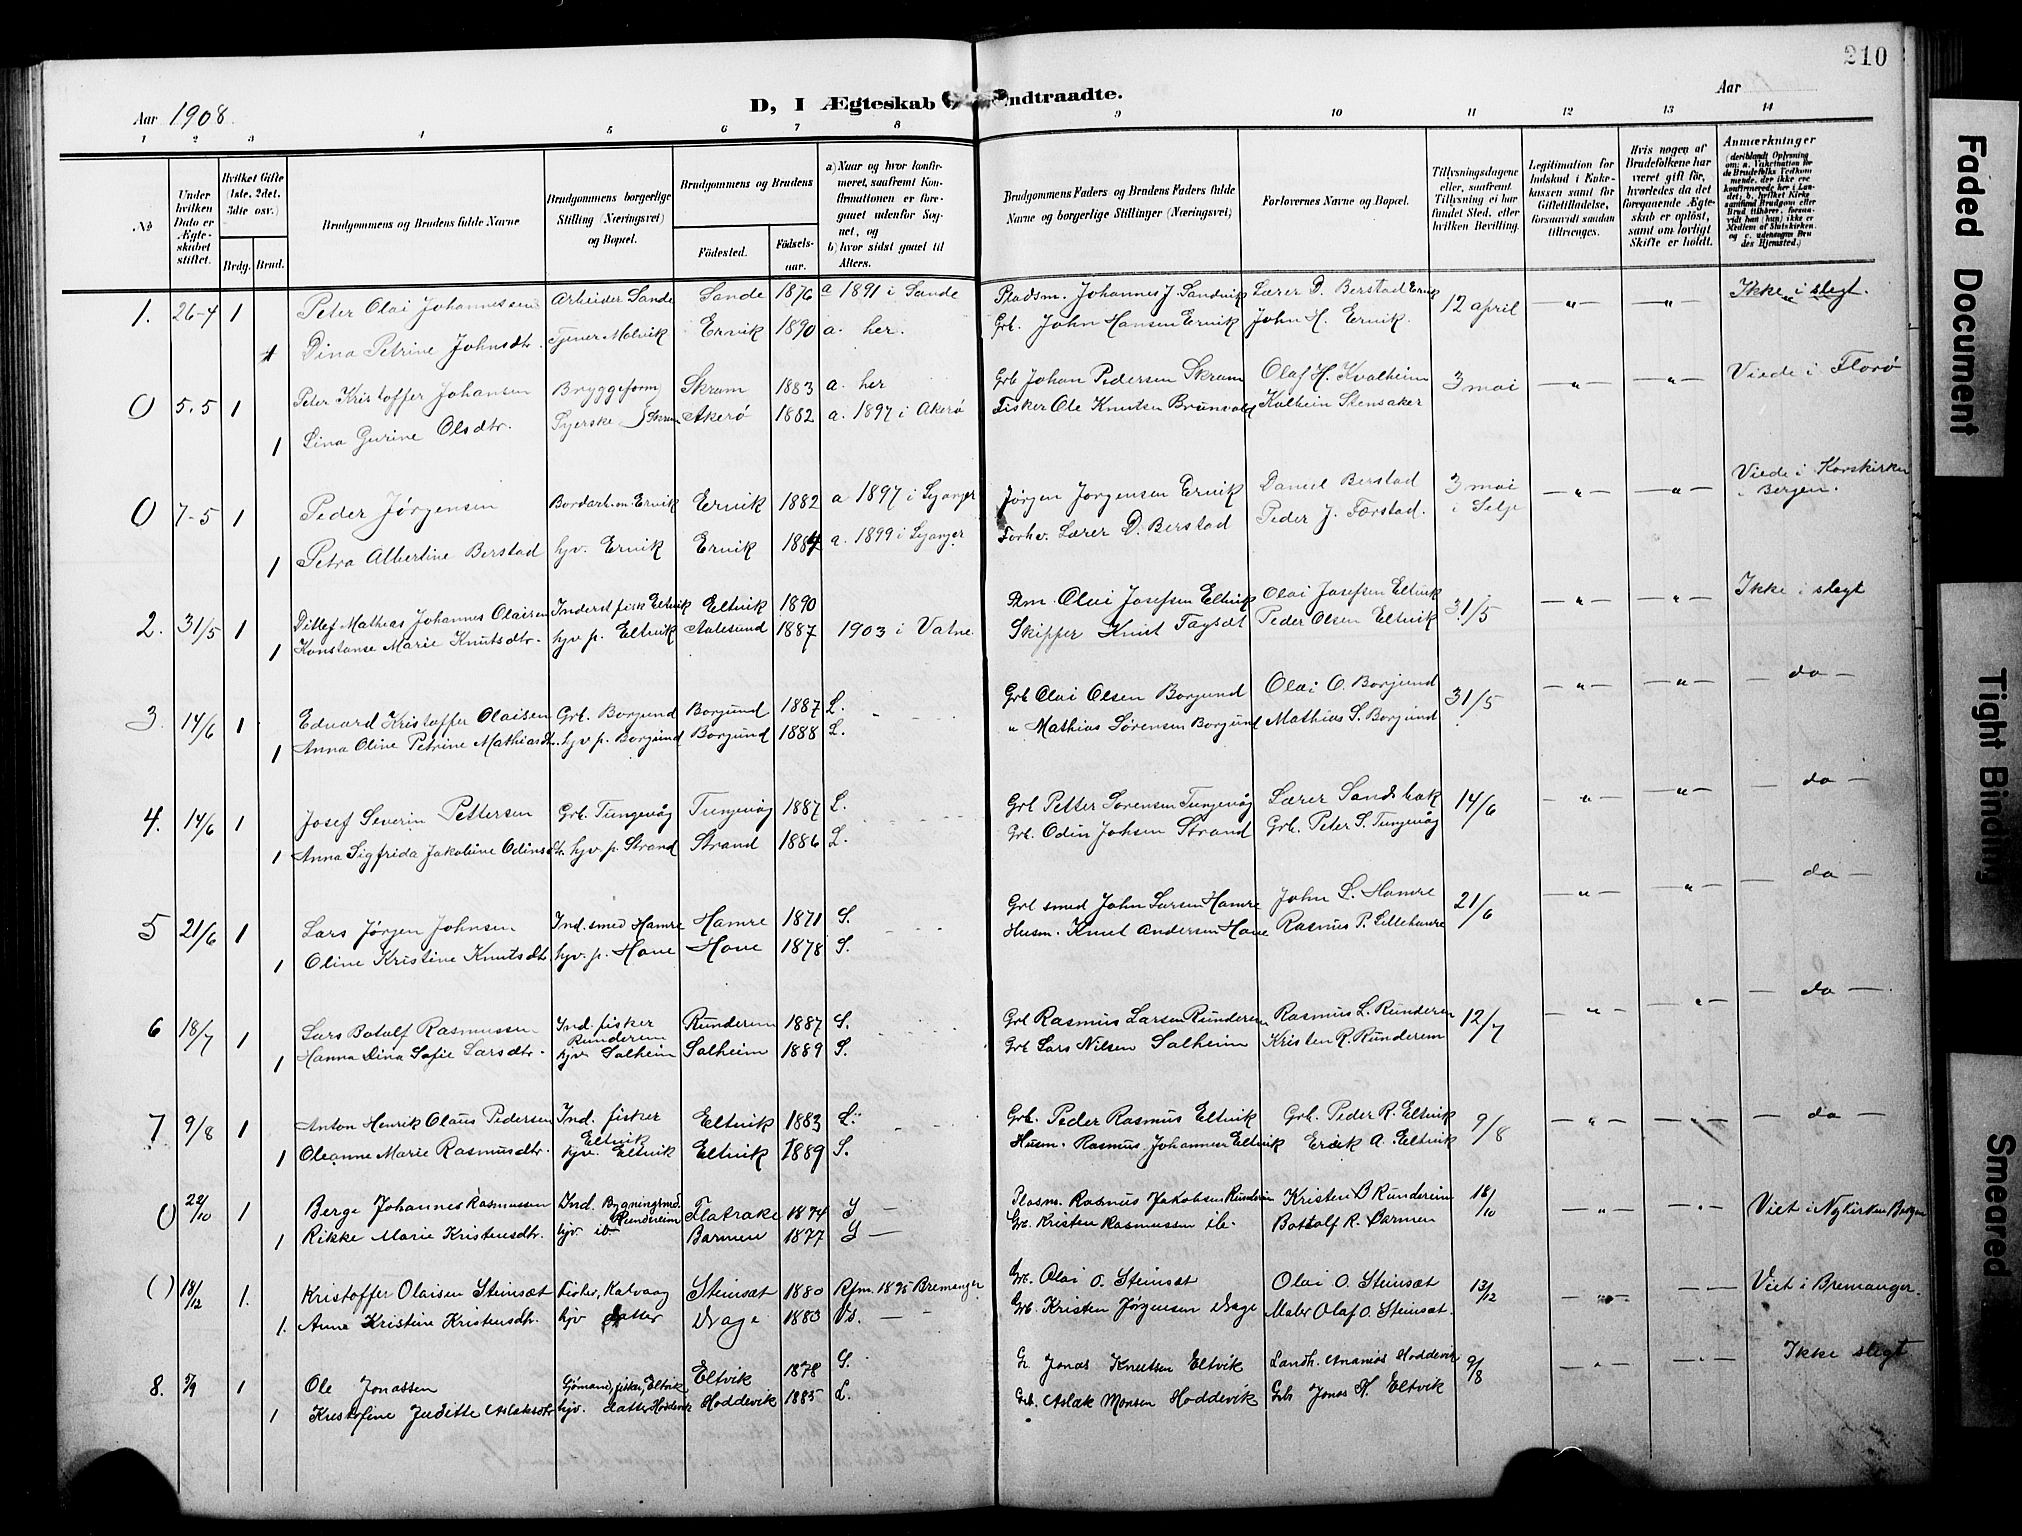 210
D, I Ægteskab Indtraadte.
Aar 1908. Aar
1 2 3 4 5 6 7 8 9 10 11 12 13 14
No Under hvilken Dato er Ægteskabet stiftet. Hvilket Gifte (1ste, 2det, 3die osv.) Brdg. Brud. Brudgommens og Brudens fulde Navne Brudgommens borgerlige Stilling (Næringsvei) og Bopæl. Brudgommens og Brudens Födested. Födselsaar. a) Naar og hvor konfirmeret, saafremt Konfirmationen er foregaaet udenfor Sognet, og b) hvor sidst gaaet til Alters. Brudgommens Faders og Brudens Faders fulde Navne og borgerlige Stillinger (Næringsvei) Forlovernes Navne og Bopæl. Tillysningsdagene eller, saafremt Tillysning ei har fundet Sted, efter hvilken Bevilling. Legitimation for Indskud i Enkekassen samt for Giftetilladelse, forsaavidt saadan tiltrænges. Hvis nogen af Brudefolkene har været gift før, hvorledes da det foregaaende Ægteskab er opløst, samt om lovligt Skifte er holdt. Anmærkninger
1. 26-4 1 Peter Olai Johannessen Arbeider Sande Sande 1876 a 1891 i Sande Pladsm. Johannes J. Sandvik Lærer D. Berstad Ervik 12 april —„— —„— Ikke i slegt.
1 Dina Petrine Johnsdtr. Tjener Molvik Ervik 1890 a. her. Grb. John Hansen Ervik John H. Ervik.
0 5.5 1 Peter Kristoffer Johansen Bryggeform Skram 1883 a. her Grb Johan Pedersen Skram Olaf H. Kvalheim 3 mai —„— —„— Viede i Florø
1 Lina Gurine Olsdtr. Syerske Skram Akerø 1882 a. 1897 i Akerø Fisker Ole Knutsen Brunvold Kalhein Stensaker
0 7-5 1 Peder Jørgensen Bordarb.m. Ervik Ervik 1882 a 1897 i Lejanger Jørgen Jørgensen Ervik Daniel Berstad 3 mai i Selje —„— —„— Viede i Korskirken i Bergen.
1 Petra Albertine Berstad hjv. Ervik Ervik 1884 a. 1899 i Lejanger Forhv. Lærer D. Berstad Peder J. Færstad.
2. 31/5 1 Ditlef Mathias Johannes Olaisen Inderst fisk Eltvik Eltvik 1890 Pm. Olai Josefsen Eltvik Olai Josefsen Eltvik 31/5 —„— —„— Ikke i slegt
1 Konstanse Marie Knutsdtr. hjv p. Eltvik Aalesund 1887 1903 i Vatne Skipper Knut Peder Olsen Eltvik
3. 14/6 1 Edvard Kristoffer Olaisen Grb. Borgund Borgund 1887 L. Grb Olai Olsen Borgund Olai O. Borgund 31/5 —„— —„— — do —
1 Anna Oline Petrine Mathiasdtr. hjv p. Borgund Borgund 1888 L. „ Mathias Sørensen Borgund Mathias S. Borgund
4. 14/6 1 Josef Severin Pettersen Grb. Tungevåg Tungevåg 1887 L. Grb Petter Sørensen Tungevåg Lærer Sandsbak 14/6 —„— —„— — do —
1 Anna Sigfrida Jakobine Odinsdtr. hjv. p. Strand Strand 1886 L. Grb. Odin Johsen Strand Grb. Peter S. Tungevåg
5 21/6 1 Lars Jørgen Johnsen Ind. smed Hamre Hamre 1871 S. Grb smed John Larsen Hamre John L. Hamre 21/6 —„— „— — do —
1 Oline Kristine Knutsdtr. hjv. p. Hove Hove 1878 S. Husm. Knut Andersen Hove Rasmus P. Lillehamre
6 18/7 1 Lars Botolf Rasmussen Ind. fisker Runderem Runderem 1887 S. Grb Rasmus Larsen Runderem Rasmus L. Runderem 12/7 —„— —„— — do —
1 Hanna Dina Sofie Larsdtr. hjv. Salheim Salheim 1889 S. Grb Lars Nilsen Salheim Kristen R. Runderem
7 9/8 1 Anton Henrik Olaus Pedersen Ind. fisker Eltvik Eltvik 1883 L. Grb. Peder Rasmus Eltvik Grb. Peder R. Eltvik 9/8 —„— —„— — do —
1 Oleanne Marie Rasmusdtr. hjv. Eltvik Eltvik 1889 S. Husm. Rasmus Johannesen Eltvik Eræk A. Eltvik
0 22/10 1 Berge Johannes Rasmussen Ind. Bygningsmed. Rundereim Flatrake 1874 Y — Plasm. Rasmus Jakobsen Runderem Kristen B Rundereim 18/10 —„— —„— Viet i Nykirken Bergen
1 Rikke Marie Kristensdtr. hjv. ib— Barmen 1877 Y — Gr. Kristen Rasmussen ib. Bottolf R. Barmen
0 18/12 1. Kristoffer Olaisen Steinsæt Fisker, Kalvaag Steinsæt 1880 Kfm. 1895 Bremanger Gr. Olai O. Steinsæt Olai O. Steinsæt 13/12 —„— —„— Viet i Bremanger.
1. Anne Kristine Kristensdtr. hjv datter Drage 1883 Vs. — Grb. Kristen Jørgensen Drage Maler Olaf O. Steinsæt.
8. 5/9 1 Ole Jonassen Gømand, fisker, Eltvik Eltvik 1878 S. G. Jonas Knutsen Eltvik Landh. Ananias Hoddevik 9/8 —„— —„— Ikke slegt
1 Kristofine Juditte Aslaksdtr hjv. datter Hoddevik Hoddevik 1885 L. Grb. Aslak Monsen Hoddevik Grb Jonas H. Eltvik
Faded Document
Tight Binding
Smeared